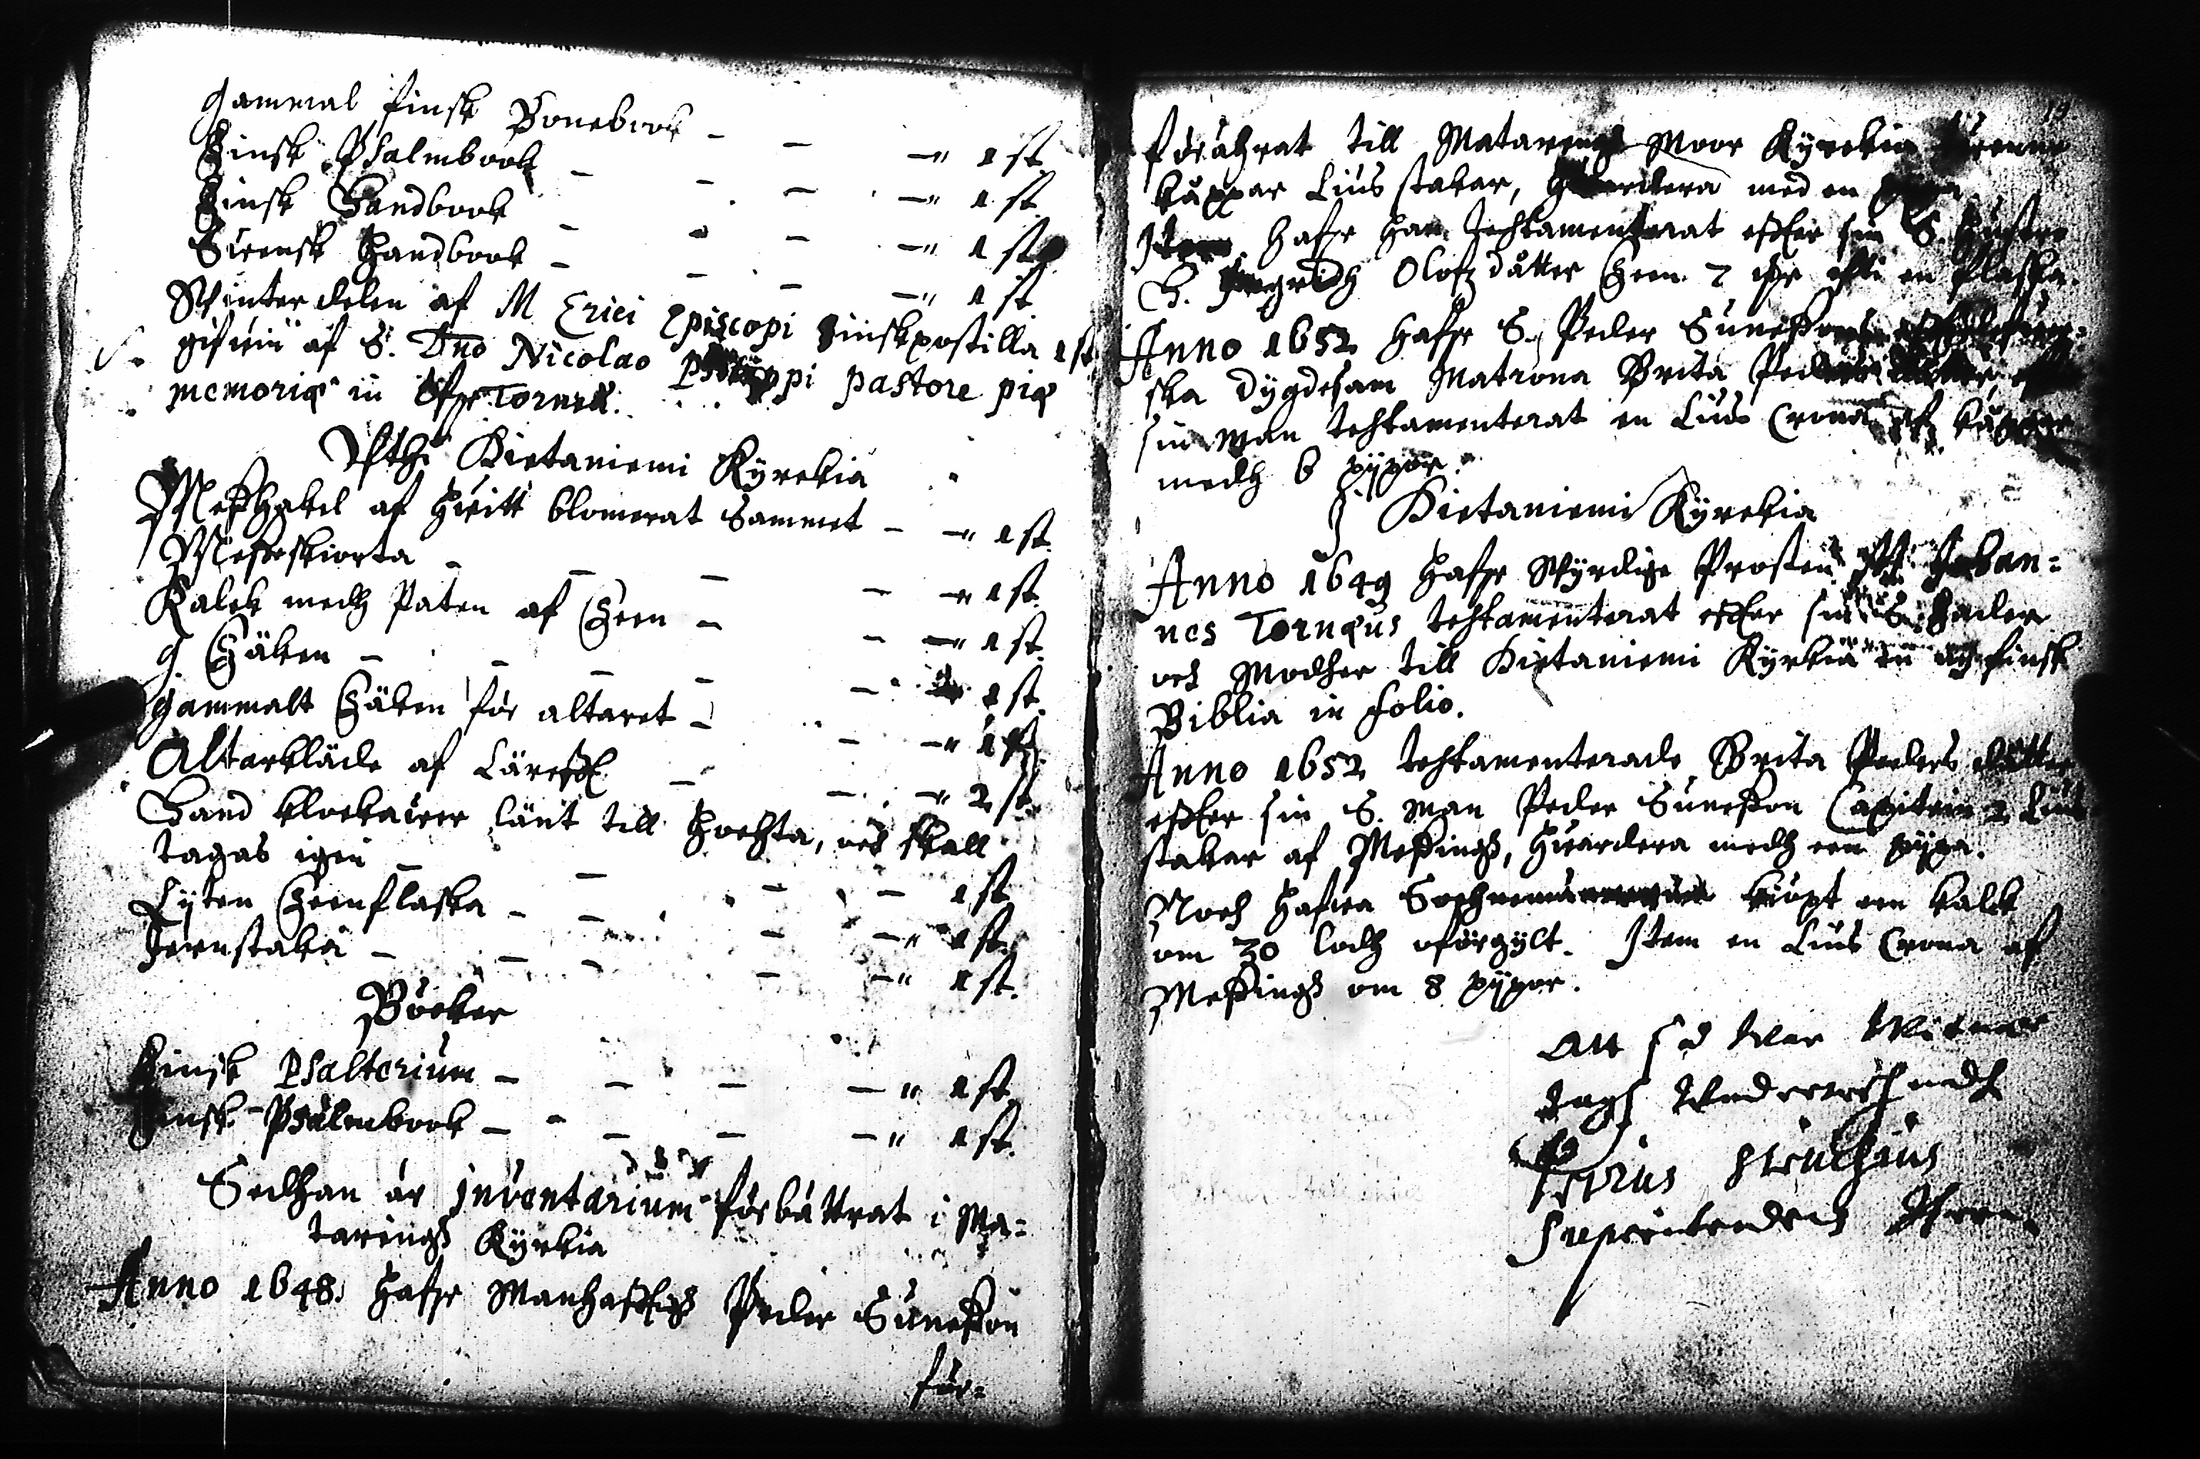 gammal finsk Bönebook - - -" 1 st
Finsk Psalmbook - - - -" 1 st.
Finsk Handbook - - - -" 1 st
Suensk Handbook - - - -" 1 st
Winterdelen af M Erici Episcopi Finskpostilla 1 st
gifuin af S. Dno Nicolao pastore piæ
memoriæ in Öfre Torneå.
Uthi Hietaniemi Kyrckia
Messhakel af huitt blomerat Sammet - -" 1 st.
Messeskiorta - - - - -" 1 st.
Kalck medh Paten af Theen - - -" 1 st.
g Thäken - - - - - 1 st.
gammalt Thäken för altaret - - -" 1 st
Altarkläde af Lärefft - - -" 2 st.
Hand klockaner länt till, och skall
tagas igen - - - - 1 st
Lyten Theenflaska - - - -" 1 st.
Jernstakā - - - - -" 1 st.
Böcker
Finsk Psalterium - - - -" 1 st
Finsk Psalmbook - - - - -" 1 st.
Sedhan är inventarium förbättrat i Ma=
tarings Kyrkia
Anno 1648. hafr Manhafftigh Peder Suneßon
för=
19
förährat till Matarengh Moor Kyrckia
kåppar Liusstakar, med en
Item hafr han Testamenterat effter sin S. Hustru
H. Ingridh Olofzdåtter Theen en flaska.
Anno 1652 hafr S. Peder Suneßons
ska dygdesam Matrona Brita Peders
sin man testamenterat en Lius Crona af kåppar
medh 6 pypor.
J Hietaniemi Kyrckia
Anno 1649 hafr Wyrdige Prosten H. Johan=
nes Tornæus testamenterat effter sin S. Fader
och Modher till Hietaniemi Kyrkia en finsk
Biblia in folio.
Anno 1652 testamenterade Brita Peders dåtter
effter sin S. man Peder Suneßon Capitein 2 Lius
stakar af Messingh, huardera medh een pypa.
Noch hafua Sochnemännerna kiöpt een kalck
om 30 lodh oförgylt. Item en Lius Crona af
Messingh om 8 pypor.
Att så war
tags
Petrus Steuchius
Superintendens